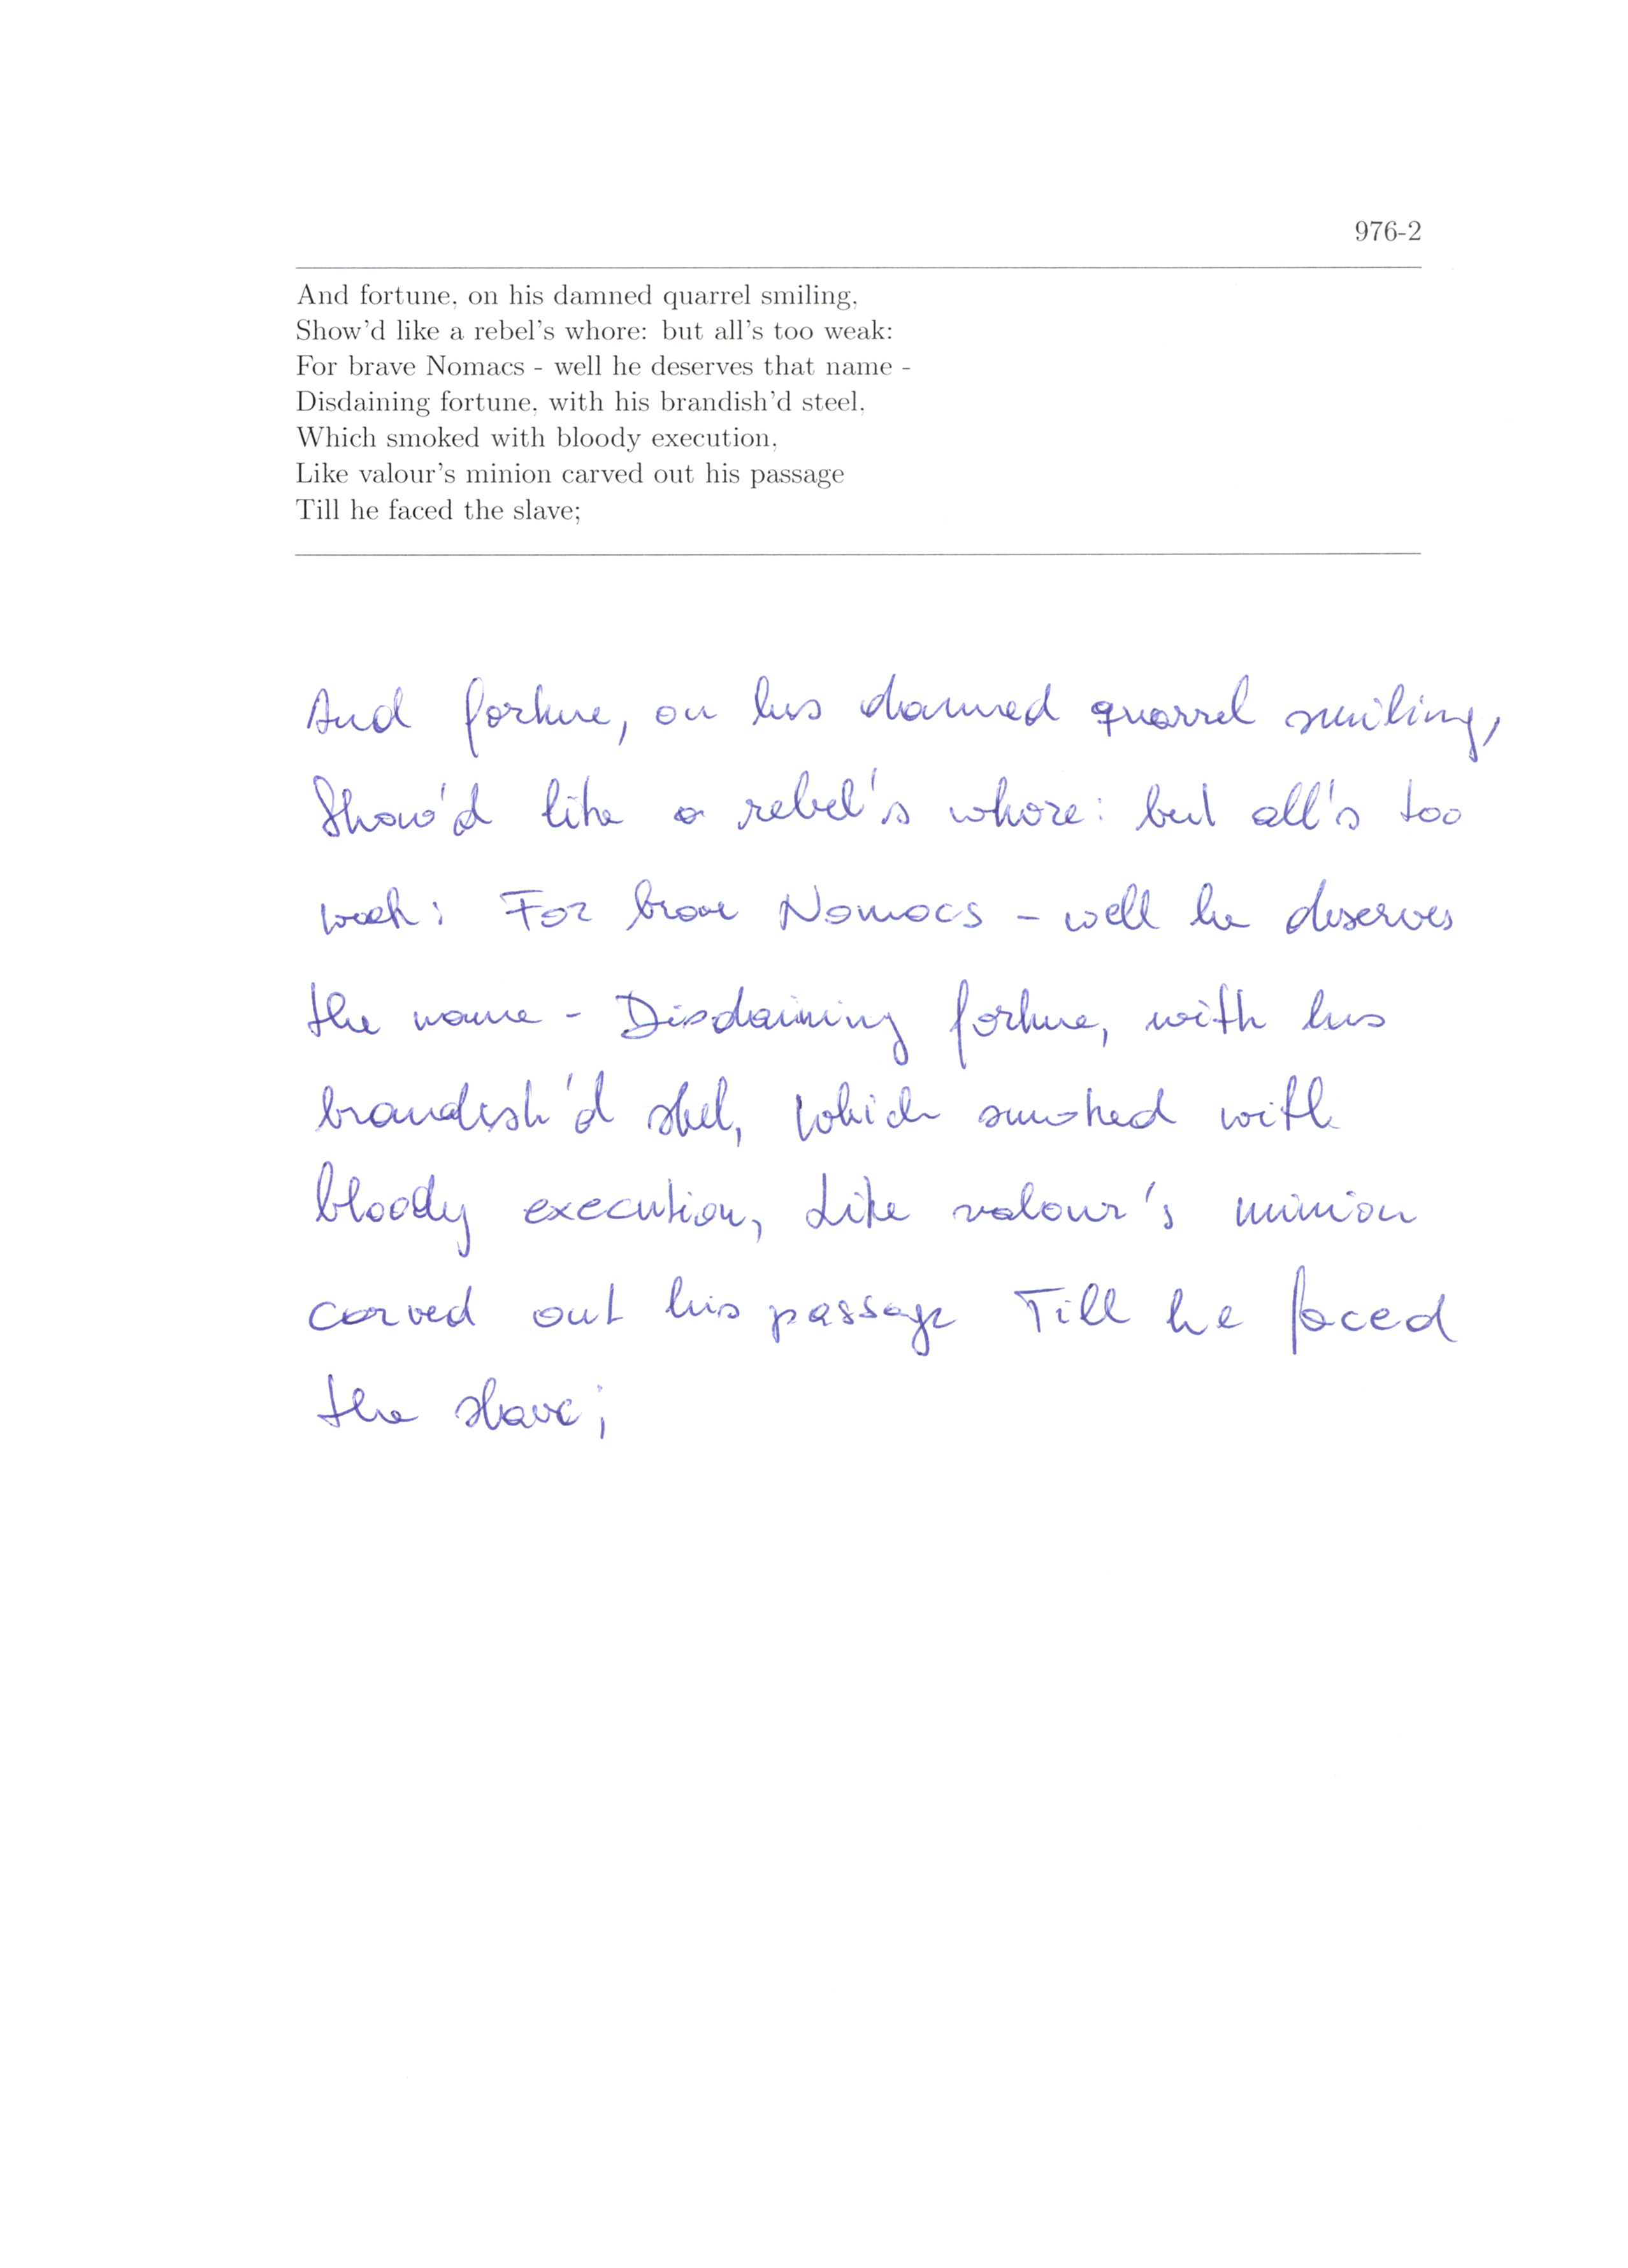 976-2
And fortune, on his damned quarrel smiling,
Show'd like a rebel's whore: but all's too weak:
For brave Nomacs - well he deserves that name -
Disdaining fortune, with his brandish'd steel,
Which smoked with bloody execution,
Like valour's minion carved out his passage
Till he faced the slave;
And fortune, on his damned quarrel smiling,
Show'd like a rebel's whore: but all's too
weak: For brave Nomacs - well he deserves
the name - Disdaining fortune, with his
brandish'd steel, Which smoked with
bloody execution, Like valour's minion
carved out his passage Till he faced
the slave;